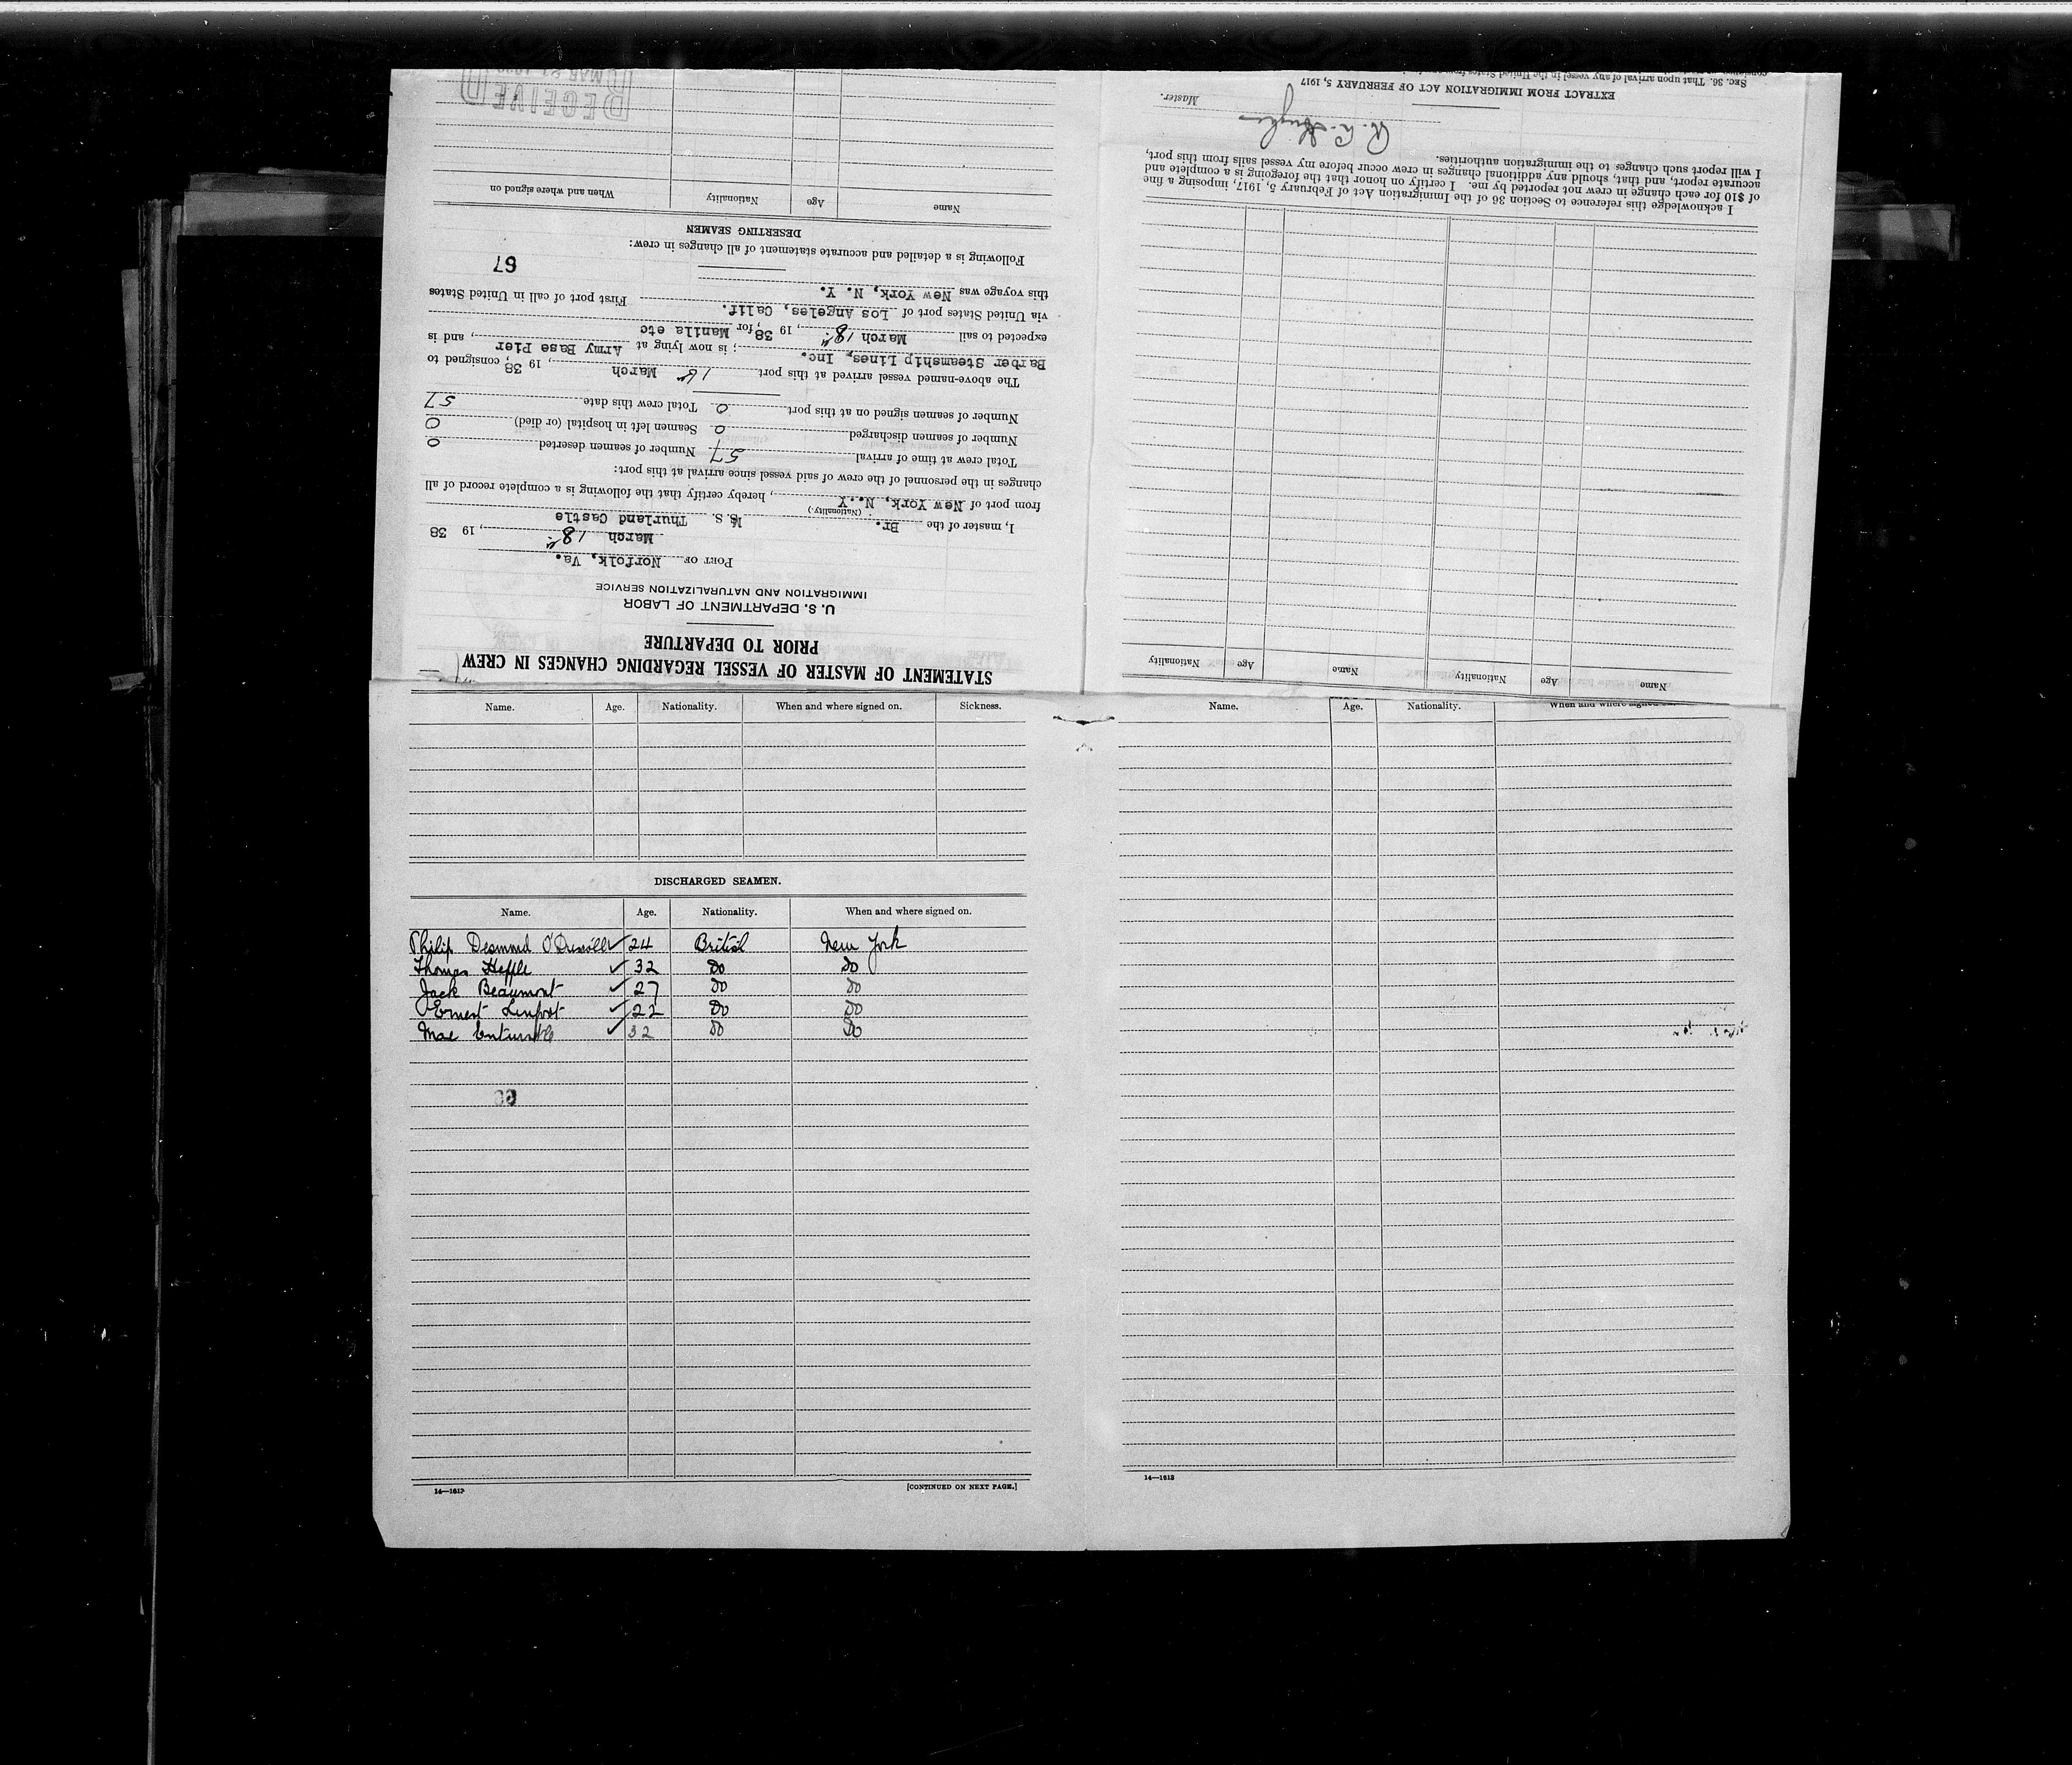 STATEMENT OF MASTER OF VESSEL REGARDING CHANGES IN CREW
PRIOR TO DEPARTURE
U. S. DEPARTMENT OF LABOR
IMMIGRATION AND NATURALIZATION SERVICE
PORT OF Norfolk, Va.
March 18th, 19 38
I, master of the Br. M.S. Thurland Castle
(Nationality.)
from port of New York, N. Y, hereby certify that the following is a complete record of all
changes in the personnel of the crew of said vessel since arrival at this port:
Total crew at time of arrival 57 Number of seamen deserted 0
Number of seamen discharged 0 Seamen left in hospital (or died) 0
Number of seamen signed on at this port 0 Total crew this date 57
The above-named vessel arrived at this port March, 19 38, consigned to
Barber Steamship Lines, Inc.; is now lying at Army Base Pier, and is
expected to sail March 18th, 19 38, for Manila etc
via United States port of Los Angeles, Calif. First port of call in United States
this voyage was New York, N. Y.
67
Following is a detailed and accurate statement of all changes in crew:
DESERTING SEAMEN
Name Age Nationality When and where signed on
RECEIVED
Name Age Nationality Name Age Nationality
I acknowledge this reference to Section 36 of the Immigration Act of February 5, 1917, imposing a fine
of $10 for each change in crew not reported by me. I certify on honor that the foregoing is a complete and
accurate report, and that, should any additional changes in crew occur before my vessel sails from this port,
I will report such changes to the immigration authorities.
Master.
EXTRACT FROM IMMIGRATION ACT OF FEBRUARY 5, 1917
SEC. 36. That upon arrival of any vessel in the United States from
Name. Age. Nationality. When and where signed on. Sickness.
DISCHARGED SEAMEN.
Name. Age. Nationality. When and where signed on.
Philip Desmond O'Driscoll ✓ 24 British New York
Thomas Hepple ✓ 32 Do Do
Jack Beaumont ✓ 27 Do Do
Ernest ✓ 22 Do Do
Mac Entwistle ✓ 32 Do Do
14—1613
[CONTINUED ON NEXT PAGE.]
Name. Age. Nationality. When and where signed
14—1613